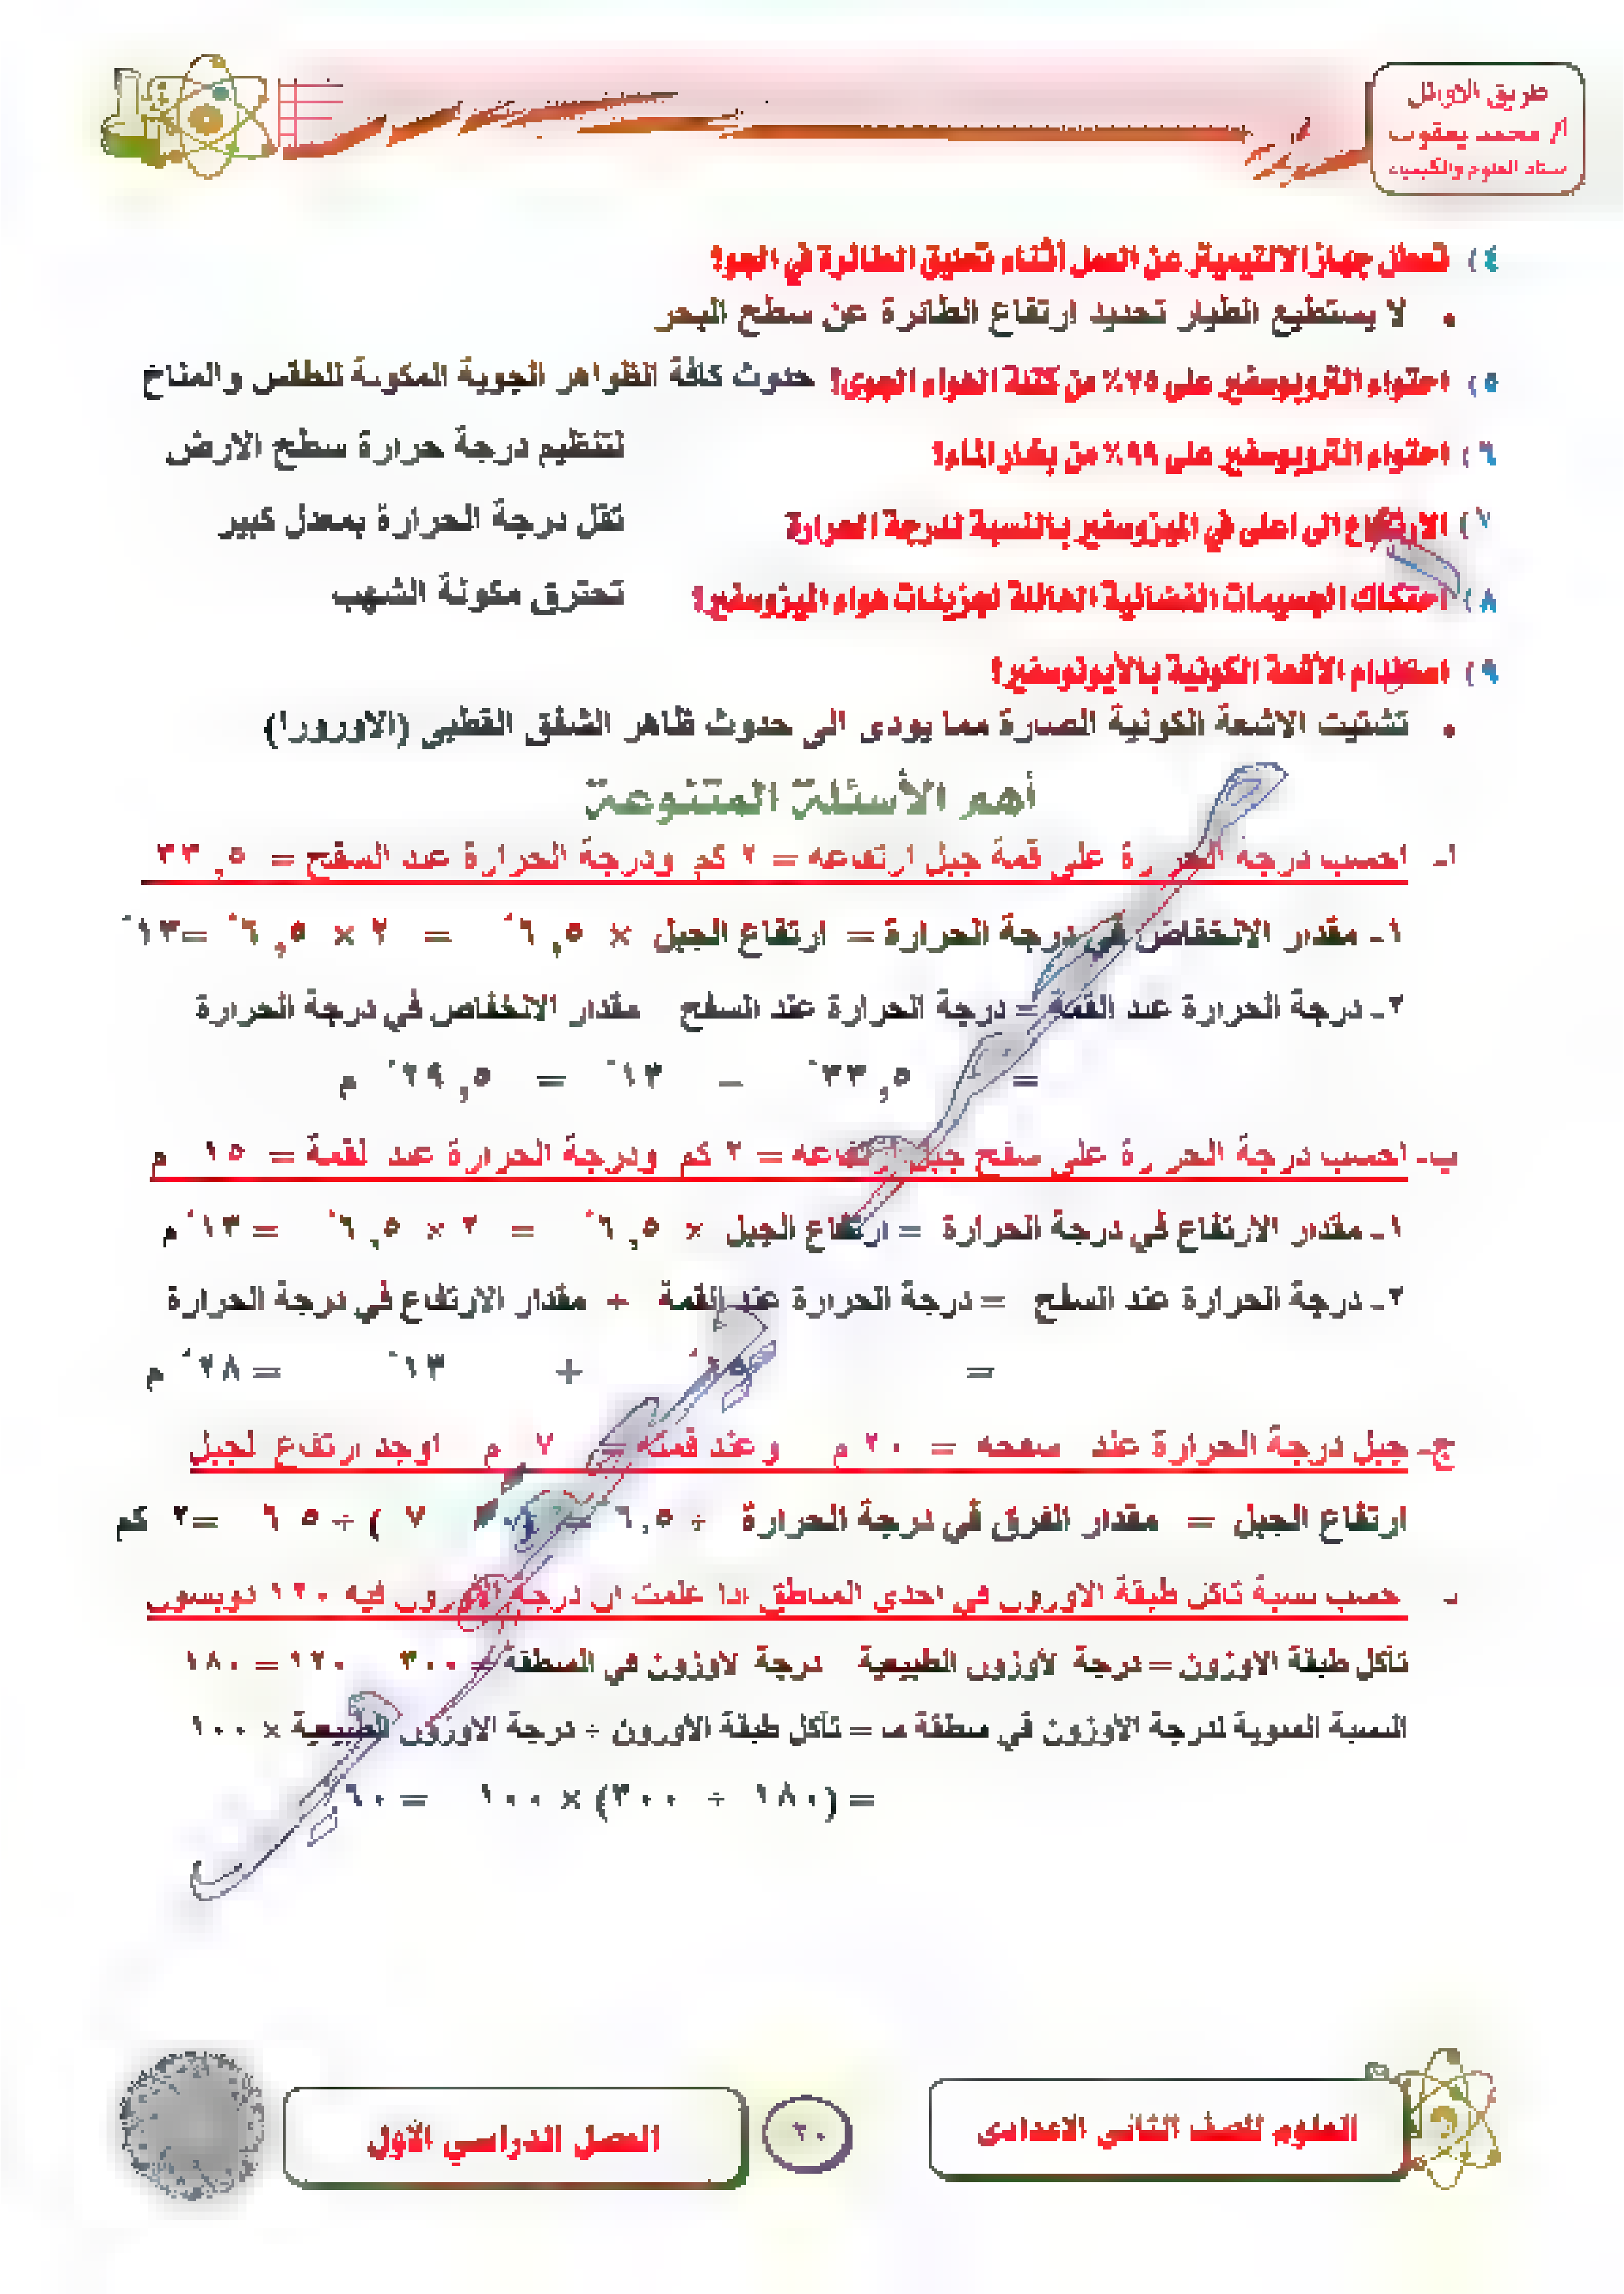 طريق الاوائل
أ/ محمد يعقوب
العلوم والكيمياء
٤) تعطل جهاز الالتيميتر عن العمل أثناء تحليق الطائرة في الجو!
• لا يستطيع الطيار تحديد ارتفاع الطائرة عن سطح البحر
٥) احتواء التروبوسفير على ٧٥٪ من كتلة الهواء الجوى! حدوث كافة الظواهر الجوية المكونة للطقس والمناخ
٦) احتواء التروبوسفير على ٩٩٪ من بخار الماء! لتنظيم درجة حرارة سطح الارض
٧) الارتفاع الى اعلى في الميزوسفير بالنسبة لدرجة الحرارة تقل درجة الحرارة بمعدل كبير
٨) احتكاك الجسيمات الفضائية الهائلة لجزيئات هواء الميزوسفير! تحترق مكونة الشهب
٩) اصطدام الأشعة الكونية بالأيونوسفير!
• تشتيت الاشعة الكونية الضارة مما يودى الى حدوث ظاهر الشفق القطبى (الاورورا)
أهم الأسئلة المتنوعة
ا- احسب درجة الحرارة على قمة جبل ارتفاعه = ٢ كم ودرجة الحرارة عند السفح = ٣٣,٥
١- مقدار الانخفاض في درجة الحرارة = ارتفاع الجبل × ٦,٥ْ = ٢ × ٦,٥ْ =١٣ْ
٢- درجة الحرارة عند القمة = درجة الحرارة عند السفح مقدار الانخفاض في درجة الحرارة
= ٣٣,٥ْ – ١٣ْ = ٢٩,٥ْ م
ب- احسب درجة الحرارة على سفح جبل ارتفاعه = ٢ كم ودرجة الحرارة عند القمة = ١٥ م
١- مقدار الارتفاع في درجة الحرارة = ارتفاع الجبل × ٦,٥ْ = ٢ × ٦,٥ْ = ١٣ْ م
٢- درجة الحرارة عند السفح = درجة الحرارة عند القمة + مقدار الارتفاع في درجة الحرارة
= ١٥ْ + ١٣ْ = ٢٨ْ م
ج- جبل درجة الحرارة عند سفحه = ٢٠ م وعند قمته = ٧ م اوجد ارتفاع الجبل
ارتفاع الجبل = مقدار الفرق في درجة الحرارة ÷ ٦,٥ = (٢٠ ٧ ) ÷ ٦ ٥ =٢ كم
د- احسب نسبة تاكل طبقة الاوزون في احدى المناطق اذا علمت ان درجة الاوزون فيه ١٢٠ دوبسون
تأكل طبقة الاوزون = درجة الأوزون الطبيعية درجة الاوزون في المنطقة = ٣٠٠ ١٢٠ = ١٨٠
النسبة المئوية لدرجة الاوزون في منطقة ما = تأكل طبقة الاوزون ÷ درجة الاوزون الطبيعية × ١٠٠
= (١٨٠ ÷ ٣٠٠) × ١٠٠ = ٦٠
العلوم للصف الثانى الاعدادى
٢٠
الفصل الدراسي الأول